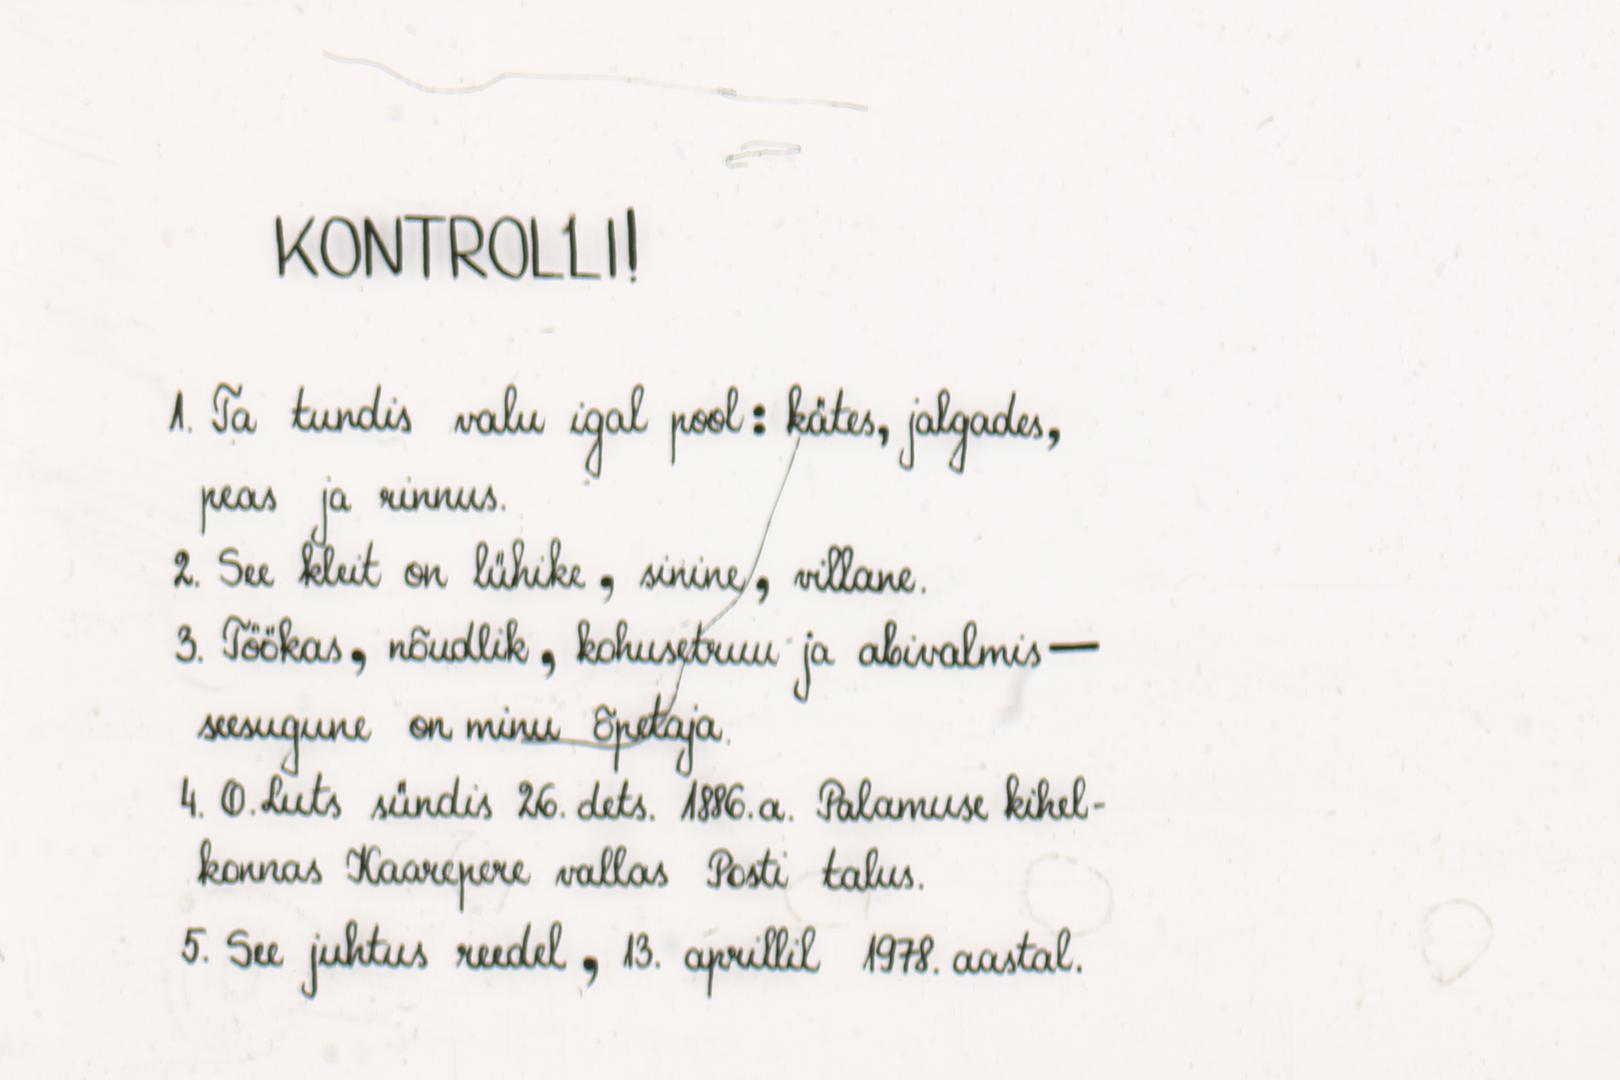 KONTROLLI!
1. Ta tundis valu igal pool: kätes, jalgades,
peas ja rinnus.
2. See kleit on lühike, sinine, villane.
3. Töökas, nõudlik, kohusetruu ja abivalmis—
seesugune on minu õpetaja.
4. O. Luts sündis 26. dets. 1886. a. Palamuse kihel-
konnas Kaarepere vallas Posti talus.
5. See juhtus reedel, 13. aprillil 1978. aastal.